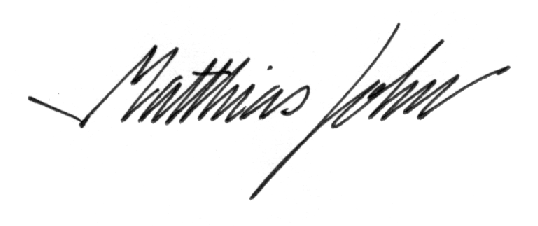 Matthias John